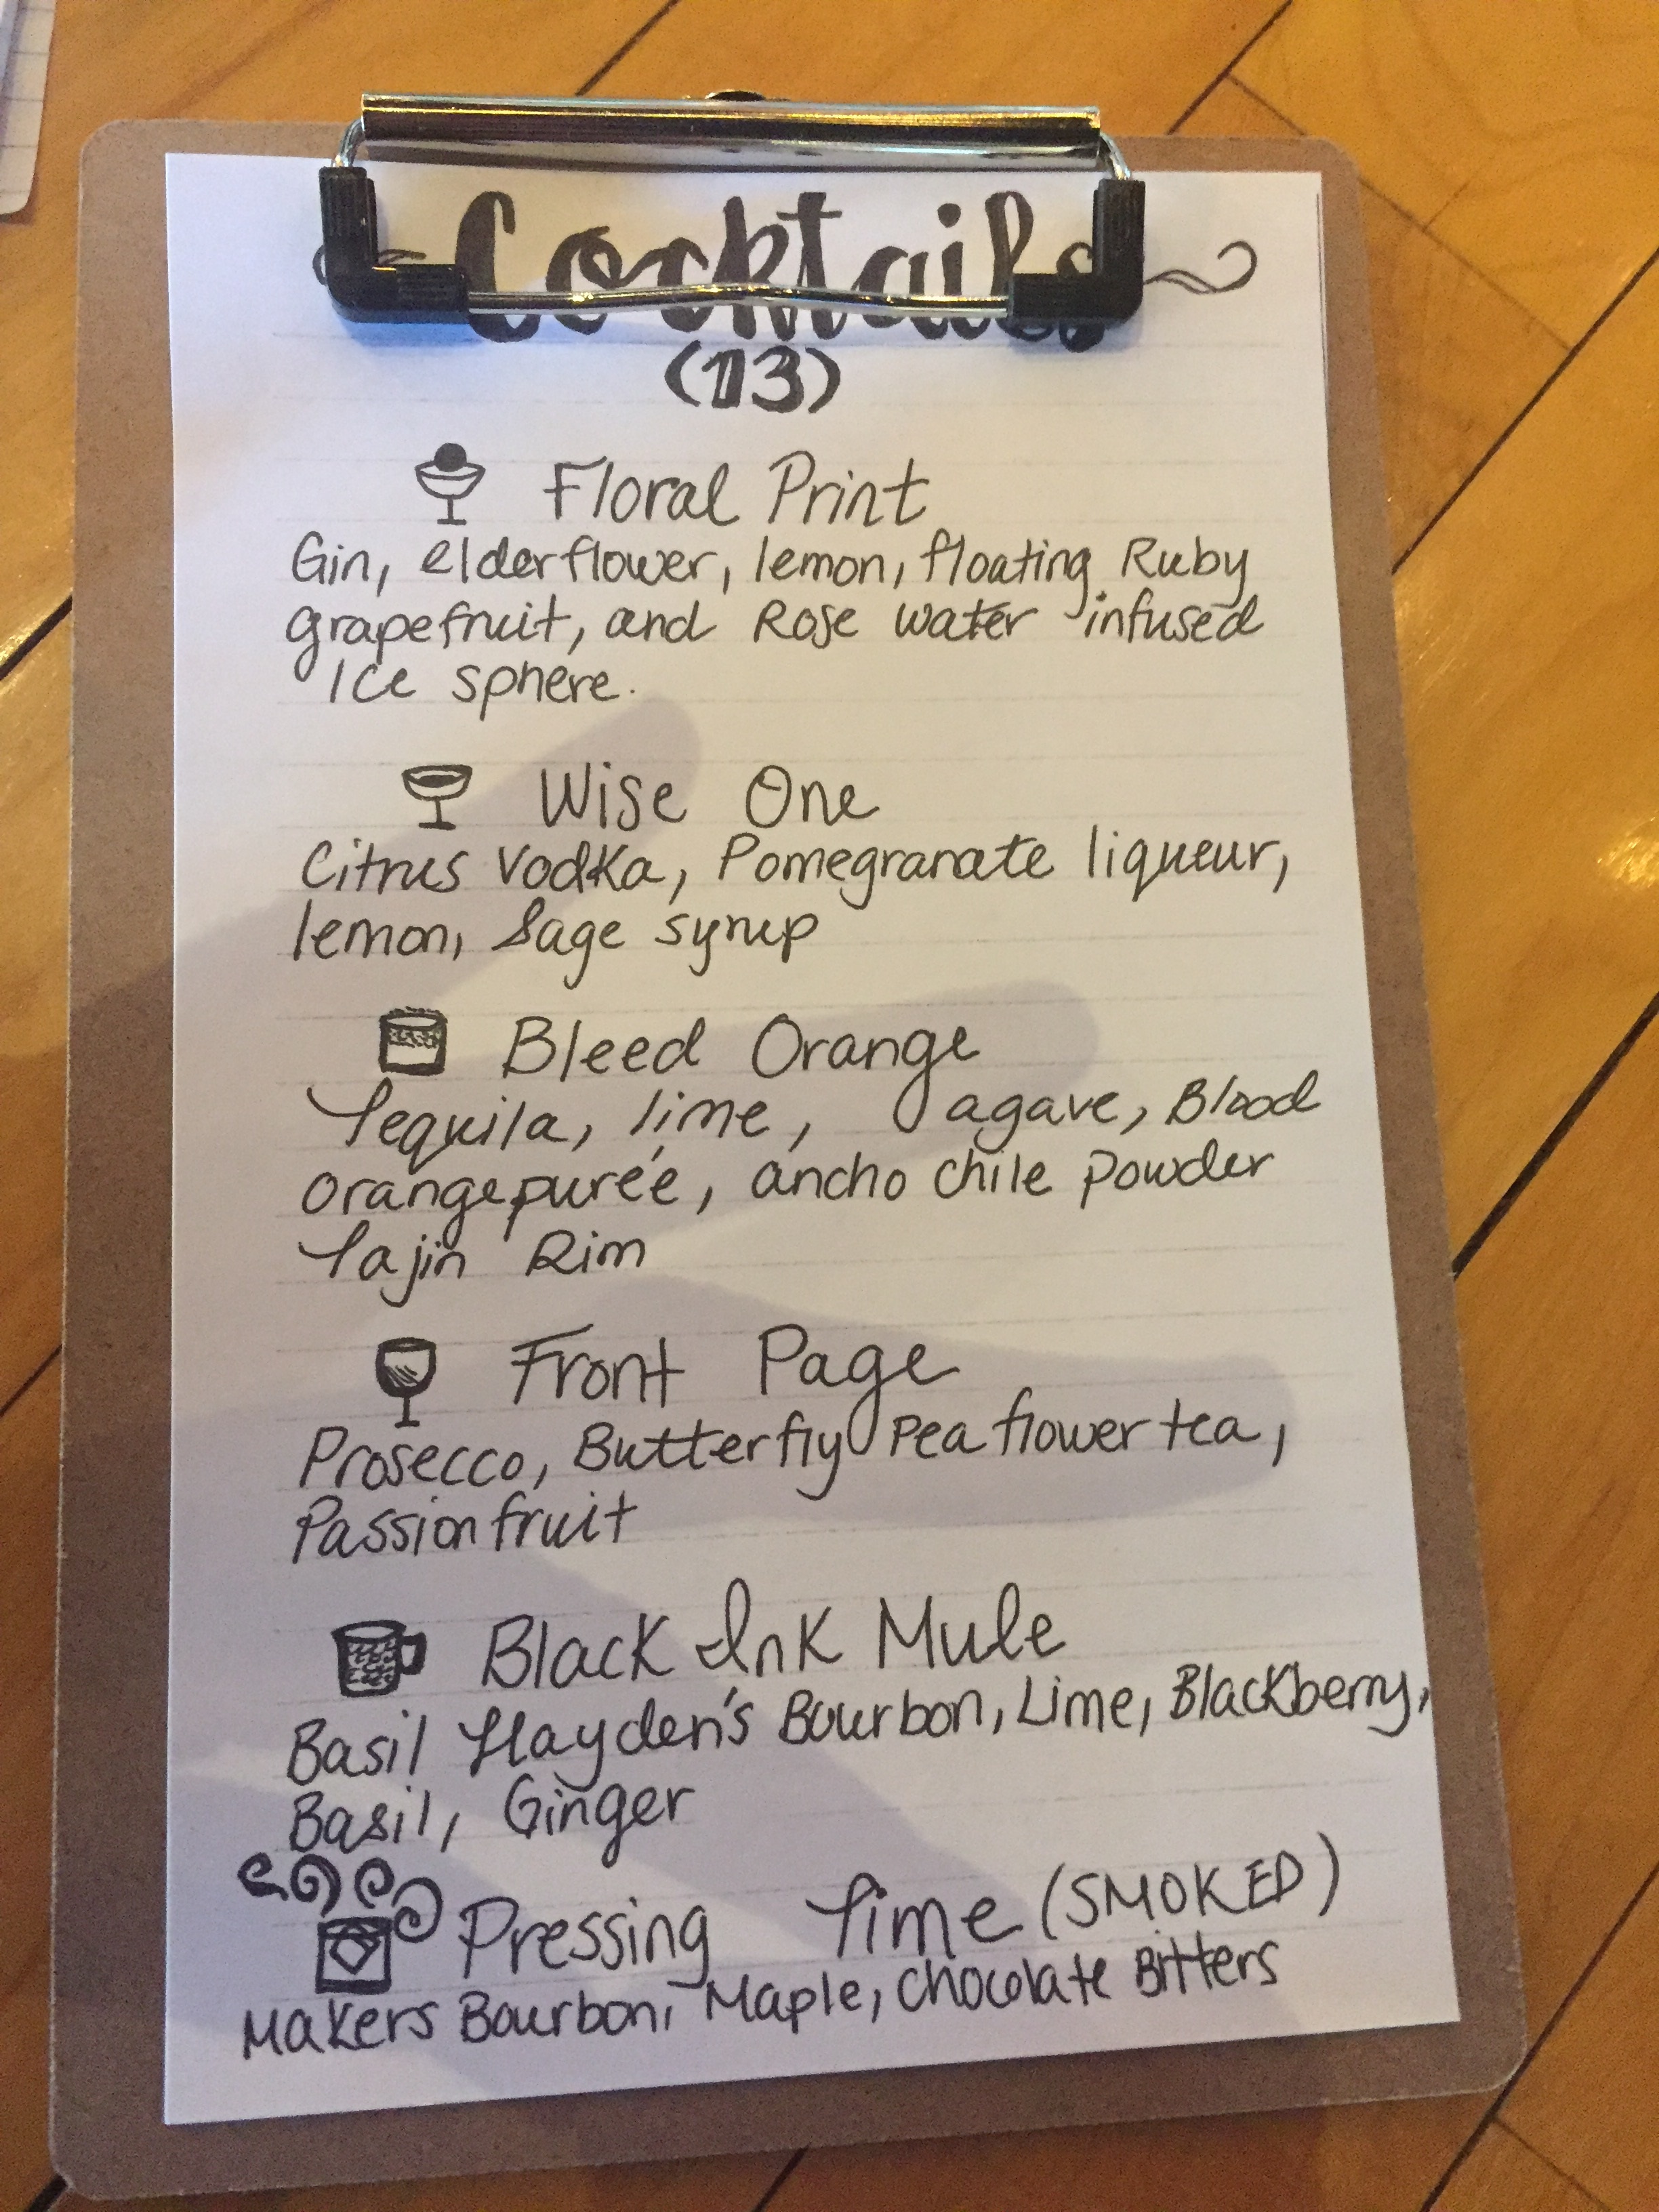 Cocktails
(13)
Floral Print
Gin, elderflower, lemon, floating Ruby
grapefruit, and Rose water infused
Ice sphere.
Wise One
Citrus Vodka, Pomegranate liqueur,
lemon, Sage syrup
Bleed Orange
Tequila, lime, agave, Blood
orange purée, ancho chile powder
Tajin Rim
Front Page
Prosecco, Butterfly Pea flower tea,
Passionfruit
Black Ink Mule
Basil Hayden's Bourbon, Lime, Blackberry,
Basil, Ginger
Pressing Time (SMOKED)
Makers Bourbon, Maple, Chocolate Bitters